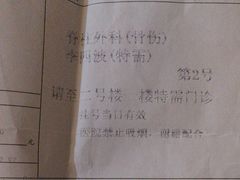 脊柱外科(骨伤)
李西波(特需)
第2号
请至二号楼 楼特需门诊
挂号当日有效
医院禁止吸烟，谢谢配合
元